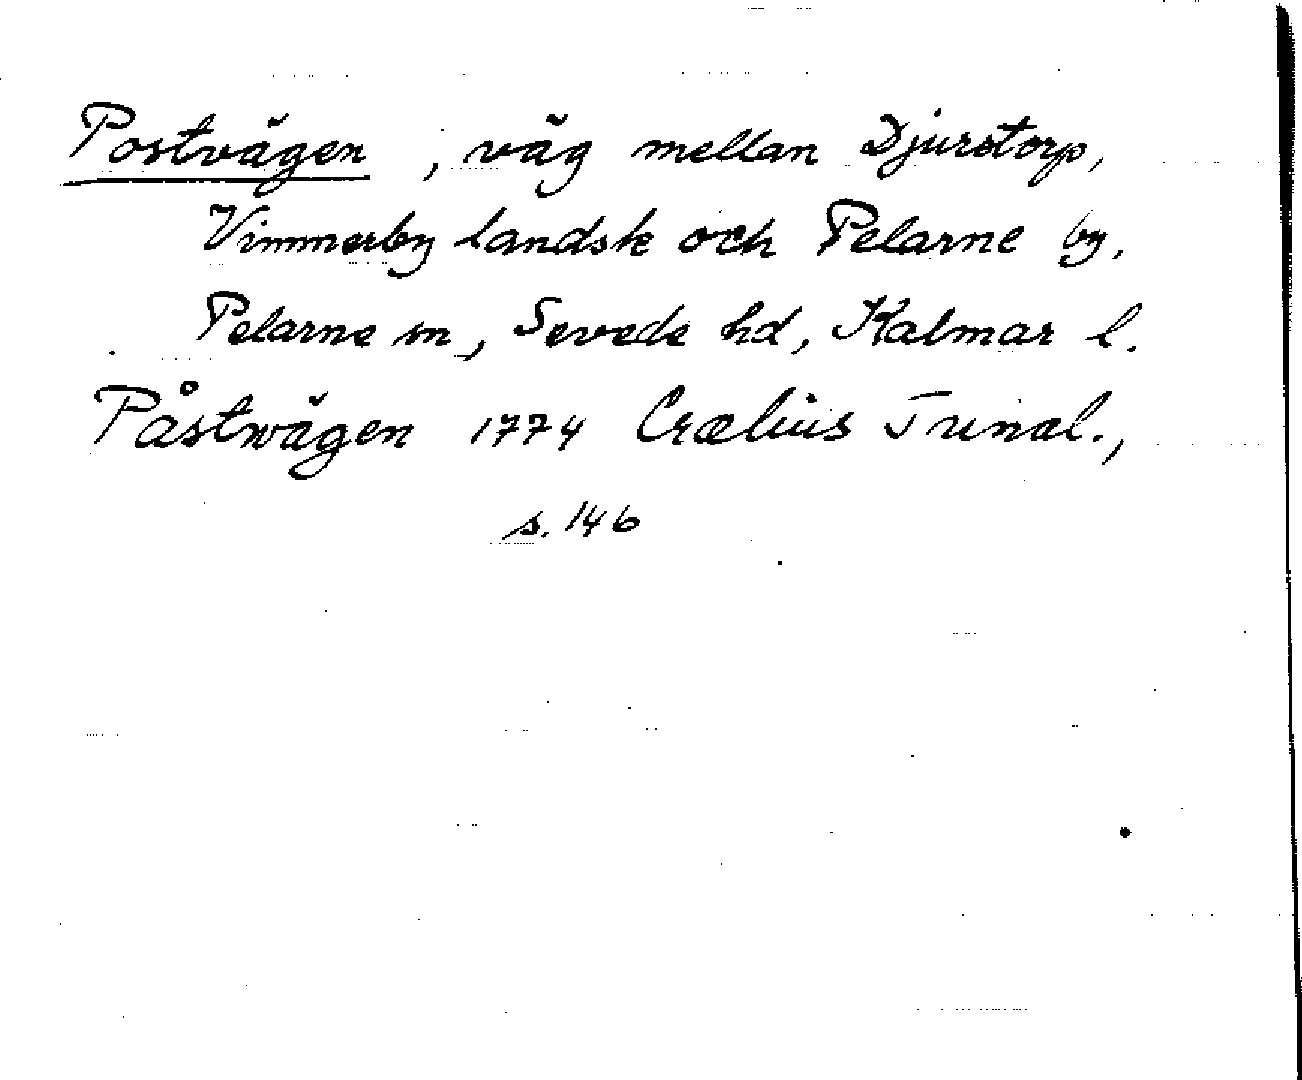 Postvägen, väg mellan Djurstorp,
Vimmerby landsk och Pelarne by,
Pelarne sn, Sevede hd, Kalmar l.
Påstwägen 1774 Crælius Tunæl.,
s. 146